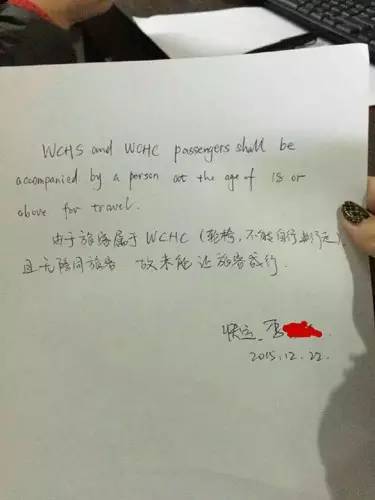 WCHS and WCHC passengers shall be
accompanied by a person at the age of 18 or
above for travel.
由于旅客属于 WCHC (轮椅,不能自行
且无陪同旅客 故未能让旅客成行.
2015.12.22.